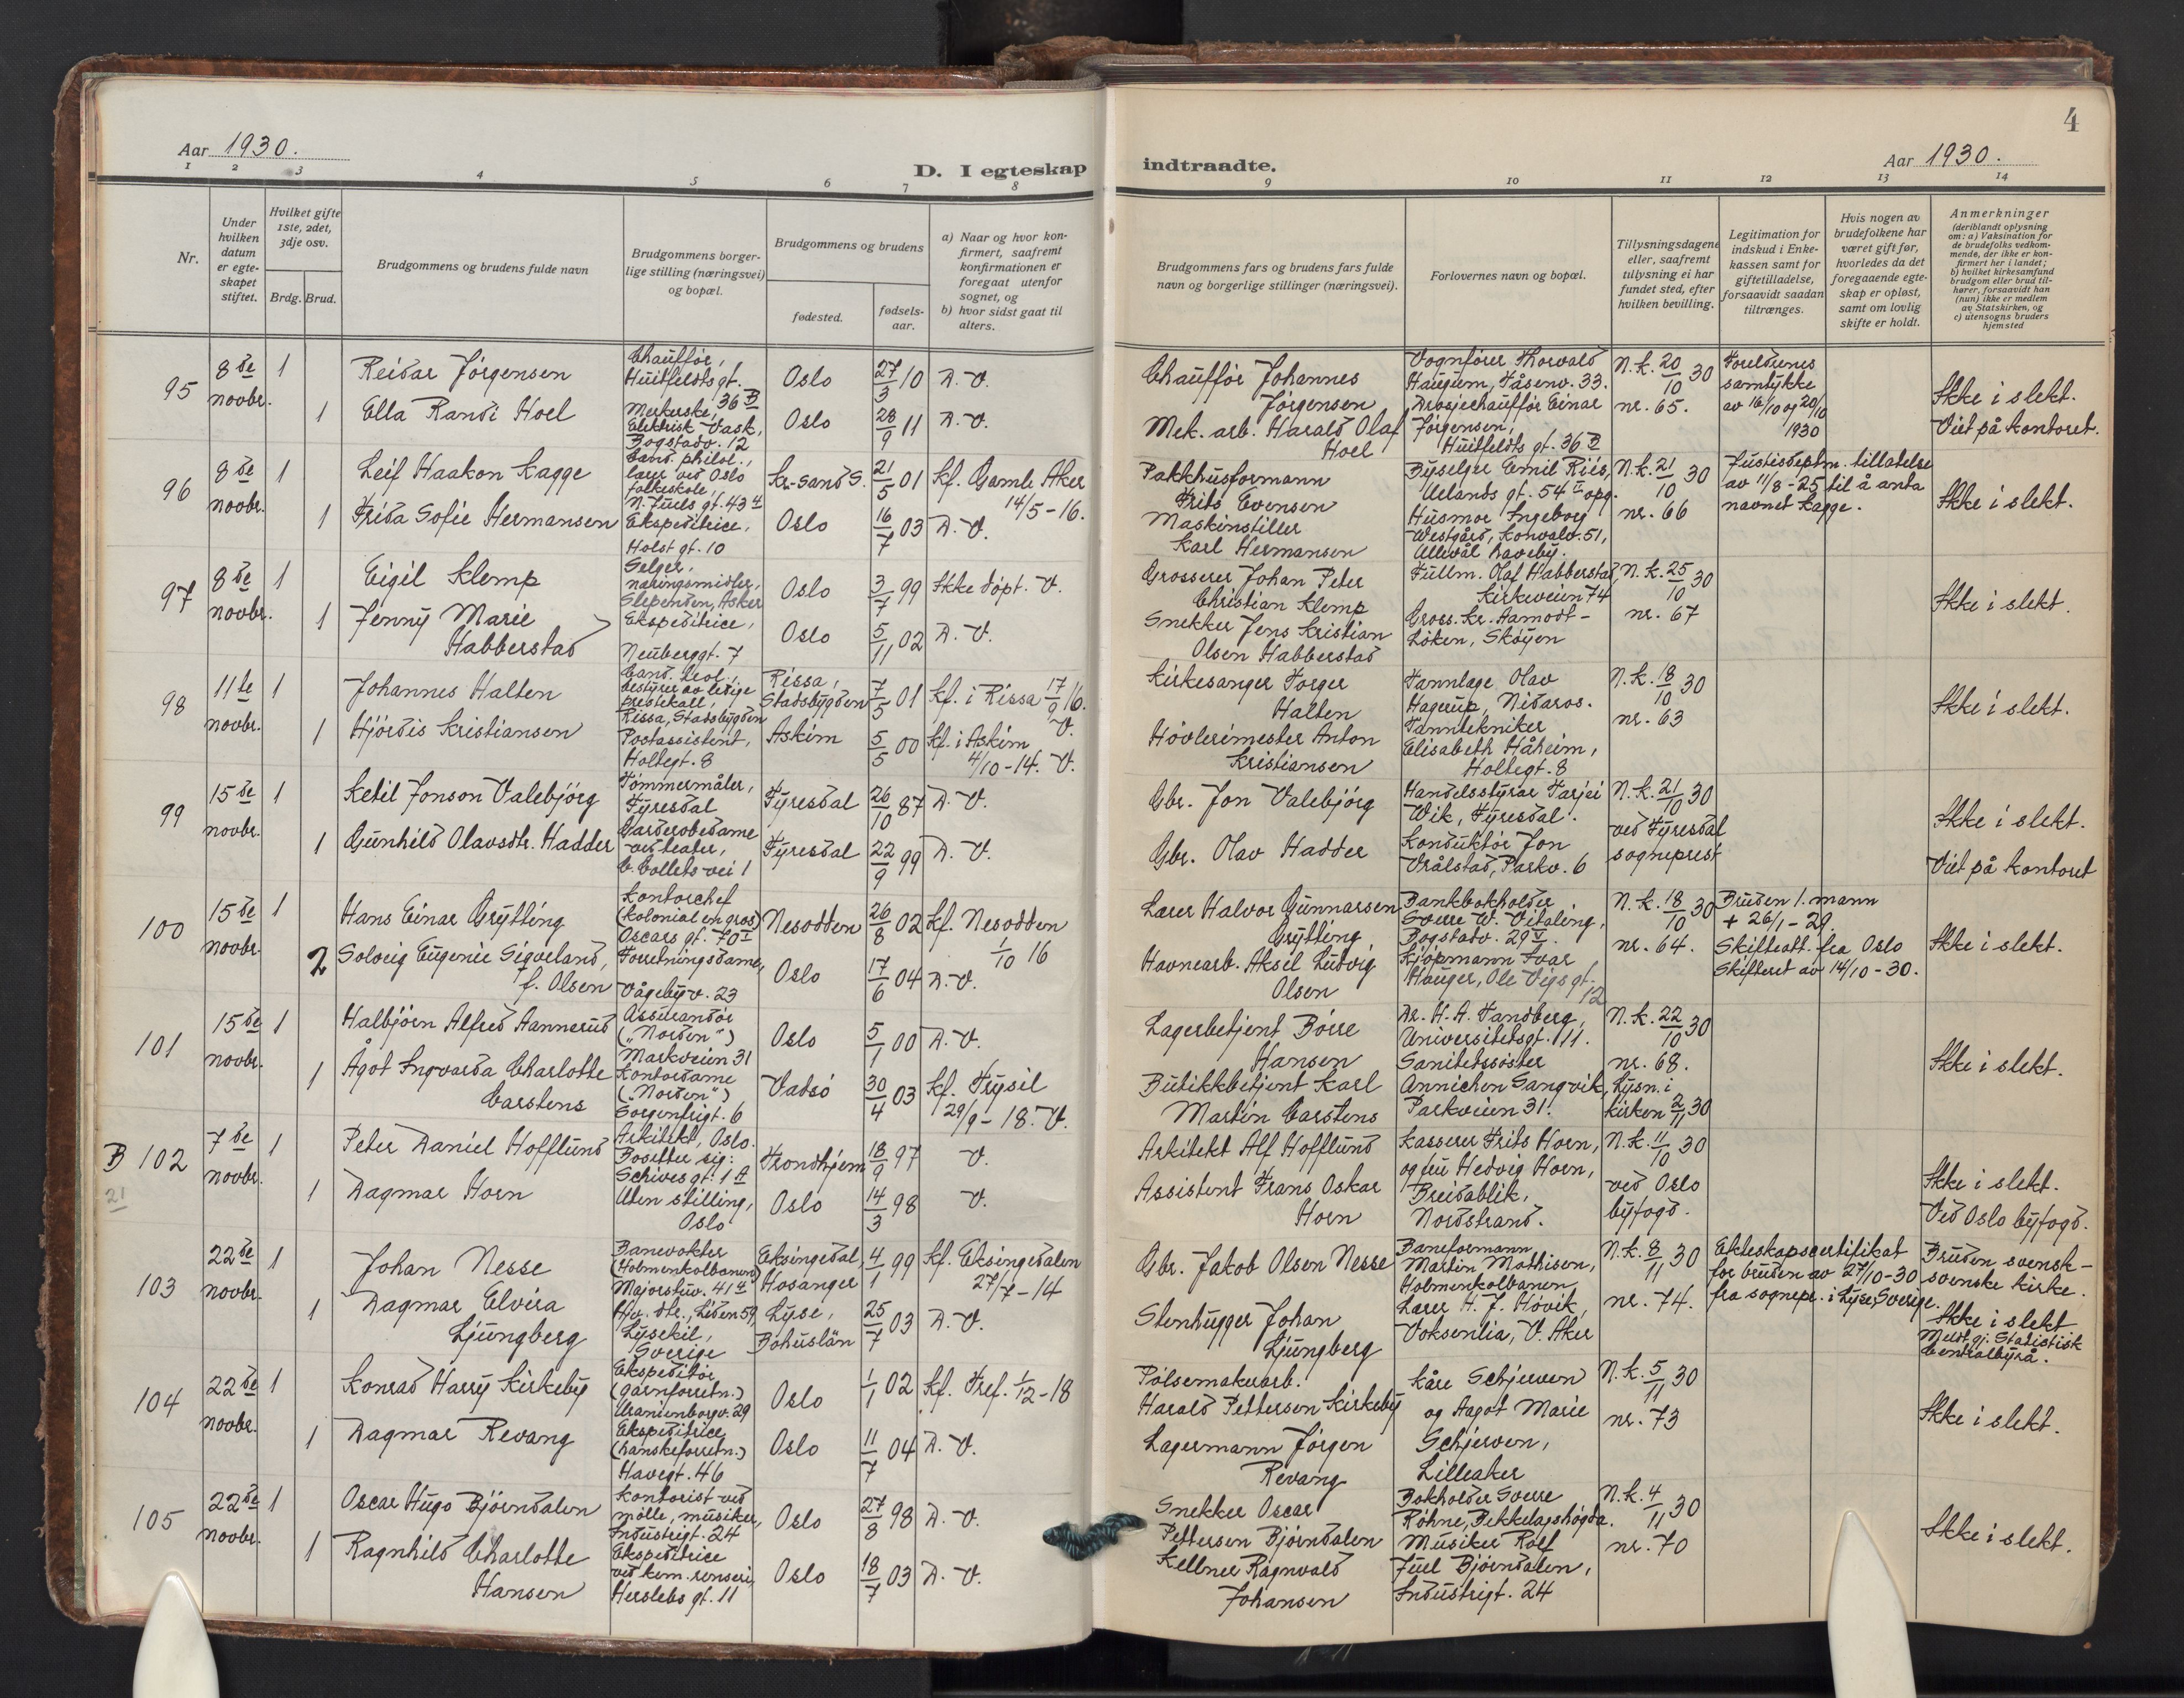 4
Aar 1930.
D. I egteskap
indtraadte.
Aar 1930.
1 2 3 4 5 6 7 8 9 10 11 12 13 14
Nr.
Under
hvilken
datum
er egte-
skapet
stiftet.
Hvilket gifte
1ste, 2det,
3dje osv.
Brdg. Brud.
Brudgommens og brudens fulde navn
Brudgommens borger-
lige stilling (næringsvei)
og bopæl.
Brudgommens og brudens
fødested.
fødsels-
aar.
a) Naar og hvor kon-
firmert, saafremt
konfirmationen er
foregaat utenfor
sognet, og
b) hvor sidst gaat til
alters.
Brudgommens fars og brudens fars fulde
navn og borgerlige stillinger (næringsvei).
Forlovernes navn og bopæl.
Tillysningsdagene
eller, saafremt
tillysning ei har
fundet sted, efter
hvilken bevilling.
Legitimation for
indskud i Enke-
kassen samt for
giftetilladelse,
forsaavidt saadan
tiltrænges.
Hvis nogen av
brudefolkene har
været gift før,
hvorledes da det
foregaaende egte-
skap er opløst,
samt om lovlig
skifte er holdt.
Anmerkninger
(deriblandt oplysning
om: a) Vaksination for
de brudefolks vedkom-
mende, der ikke er kon-
firmert her i landet;
b) hvilket kirkesamfund
brudgom eller brud til-
hører, forsaavidt han
(hun) ikke er medlem
av Statskirken, og
c) utensogns bruders
hjemsted
95
8de
novbr.
1
Reidar Jørgensen
Chauffør,
Huitfeldts gt.
36 B
Oslo
27/3 10
D. V.
1
Ella Randi Hoel
Merkerske,
Elektrisk Vask,
Bogstadv. 12
Oslo
28/9 11
D. V.
Chauffør Johannes
Jørgensen
Mek. arb. Harald Olaf
Hoel
Vognfører Thorvald
Haugum, Tåsenv. 33.
Drosjechauffør Einar
Jørgensen,
Huitfeldts gt. 36 B
N. k. 20/10 30
nr. 65.
Foreldrenes
samtykke
av 16/10 og 20/10
1930
Ikke i slekt.
Viet på kontoret.
96
8de
novbr.
1
Leif Haakon Kagge
Cand. philol.,
lærer ved Oslo
folkeskole,
N. Juels gt. 43 4
Kr-sand S.
21/5 01
Kf. Gamle Aker
14/5 - 16.
1
Frida Sofie Hermansen
Ekspeditrice,
Holst gt. 10
Oslo
16/7 03
D. V.
Pakkhusformann
Frits Evensen
Maskinstiller
Karl Hermansen
Byselger Emil Riis,
Uelands gt. 54 II opg.
Husmor Ingeborg
Westgård, Konvalv. 51,
Ullevål haveby.
N. k. 21/10 30
nr. 66
Justisdeptm. tillatelse
av 11/8 - 25 til å anta
navnet Kagge.
Ikke i slekt.
97
8de
novbr.
1
Eigil Klemp
Selger,
næringsmidler,
Slependen, Asker
Oslo
3/7 99
Ikke døpt. V.
1
Jenny Marie
Habberstad
Ekspeditrice,
Neuberggt. 7
Oslo
5/11 02
D. V.
Grosserer Johan Peter
Christian Klemp
Snekker Jens Kristian
Olsen Habberstad
Fullm. Olaf Habberstad,
Kirkeveien 74
Gross. Kr. Aamodt -
Løken, Skøyen
N. k. 25/10 30
nr. 67
Ikke i slekt.
98
11te
novbr.
1
Johannes Halten
Cand. teol.,
bestyrer av ledige
prestekall,
Rissa, Stadsbygden
Rissa,
Stadsbygden
7/5 01
Kf. i Rissa 17/9 16.
V.
1
Hjørdis Kristiansen
Postassistent,
Holtegt. 8
Askim
5/5 00
Kf. i Askim
4/10 - 14. V.
Kirkesanger Torger
Halten
Høvlerimester Anton
Kristiansen
Tannlæge Olav
Hagerup, Nidaros.
Tanntekniker
Elisabeth Håheim,
Holtegt. 8
N. k. 18/10 30
nr. 63
Ikke i slekt.
99
15de
novbr.
1
Ketil Jonson Valebjörg
Tømmermåler,
Fyresdal
Fyresdal
26/10 87
D. V.
1
Gunhild Olavsdtr. Hadder
Garderobedame
ved teater,
C. Collets vei 1
Fyresdal
22/9 99
D. V.
Gbr. Jon Valebjörg
Gbr. Olav Hadder
Handelsstyrar Tarjei
Wik, Fyresdal.
Konduktør Jon
Vrålstad, Parkv. 6
N. k. 21/10 30
ved Fyresdal
sogneprest
Ikke i slekt.
Viet på kontoret
100
15de
novbr.
1
Hans Einar Grytting
Kontorchef
(kolonial en gros)
Oscars gt. 70 I
Nesodden
26/8 02
Kf. Nesodden
1/10 16
2
Solveig Eugenie Sigveland,
f. Olsen
Forretningsdame,
Vågebyv. 23
Oslo
17/6 04
D. V.
Lærer Halvor Gunnarsen
Grytting
Havnearb. Aksel Ludvig
Olsen
Bankbokholder
Sverre W. Vitaling,
Bogstadv. 29 V.
Kjøpmann Ivar
Hauger, Ole Vigs gt.
12
N. k. 18/10 30
nr. 64.
Bruden 1. mann
+ 26/1 - 29.
Skifteatt. fra Oslo
Skifteret av 14/10 - 30.
Ikke i slekt.
101
15de
novbr.
1
Halbjørn Alfred Aannerud
Assurandør
("Norden")
Markveien 31
Oslo
5/1 00
D. V.
1
Ågot Ingvarda Charlotte
Carstens
Kontordame
("Norden")
Sorgenfrigt. 6
Vadsø
30/4 03
Kf. Trysil
29/9 - 18. V.
Lagerbetjent Børre
Hansen
Butikkbetjent Karl
Martin Carstens
Dr. H. A. Tandberg,
Universitetsgt. 11.
Sanitetssøster
Annichen Sangvik,
Parkveien 31.
N. k. 22/10 30
nr. 68.
Lysn. i
kirken 2/11 30
Ikke i slekt.
B 102
21
7de
novbr.
1
Peter Daniel Hofflund
Arkitekt, Oslo.
Bosetter sig:
Schives gt. 1 A
Trondhjem
18/9 97
V.
1
Dagmar Horn
Uten stilling,
Oslo
Oslo
14/3 98
V.
Arkitekt Alf Hofflund
Assistent Frans Oskar
Horn
Kasserer Frits Horn,
og fru Hedvig Horn,
Breidablik,
Nordstrand.
N. k. 11/10 30
ved Oslo
byfogd.
Ikke i slekt.
Ved Oslo byfogd.
103
22de
novbr.
1
Johan Nesse
Banevokter
(Holmenkolbanen)
Majorstuv. 41 4
Eksingedal,
Hosanger
4/1 99
Kf. Eksingedalen
27/7 - 14
1
Dagmar Elvira
Ljungberg
Hv. dtr., Liden 59,
Lysekil,
Sverige
Lyse,
Bohuslän
25/7 03
D. V.
Gbr. Jakob Olsen Nesse
Stenhugger Johan
Ljungberg
Baneformann
Martin Mathisen,
Holmenkolbanen
Lærer H. J. Høvik,
Voksenlia, V. Aker
N. k. 8/11 30
nr. 74.
Ekteskapscertifikat
for bruden av 27/10 - 30
fra sognepr. i Lyse, Sverige.
Bruden svensk -
svenske kirke.
Ikke i slekt
Meldt gj. Statistisk
Centralbyrå.
104
22de
novbr.
1
Konrad Harry Kirkeby
Ekspeditør
(garnforretn.)
Uranienborgv. 29
Oslo
1/1 02
Kf. Tref. 1/12 - 18
1
Dagmar Revang
Ekspeditrice
(hanskeforretn.)
Havegt. 46
Oslo
11/7 04
D. V.
Pølsemakerarb.
Harald Pettersen Kirkeby
Lagermann Jørgen
Revang
Kåre Schjerven
og Aagot Marie
Schjerven,
Lilleaker
N. k. 5/11 30
nr. 73
Ikke i slekt.
105
22de
novbr.
1
Oscar Hugo Bjørndalen
Kontorist ved
mølle, musiker,
Industrigt. 24
Oslo
27/8 98
D. V.
1
Ragnhild Charlotte
Hansen
Ekspeditrice
ved kem. renseri,
Herslebs gt. 11
Oslo
18/7 03
D. V.
Snekker Oscar
Pettersen Bjørndalen
Kellner Ragnvald
Johansen
Bokholder Sverre
Røhne, Bekkelagshøgda.
Musiker Rolf
Juel Bjørndalen,
Industrigt. 24
N. k. 4/11 30
nr. 70
Ikke i slekt.